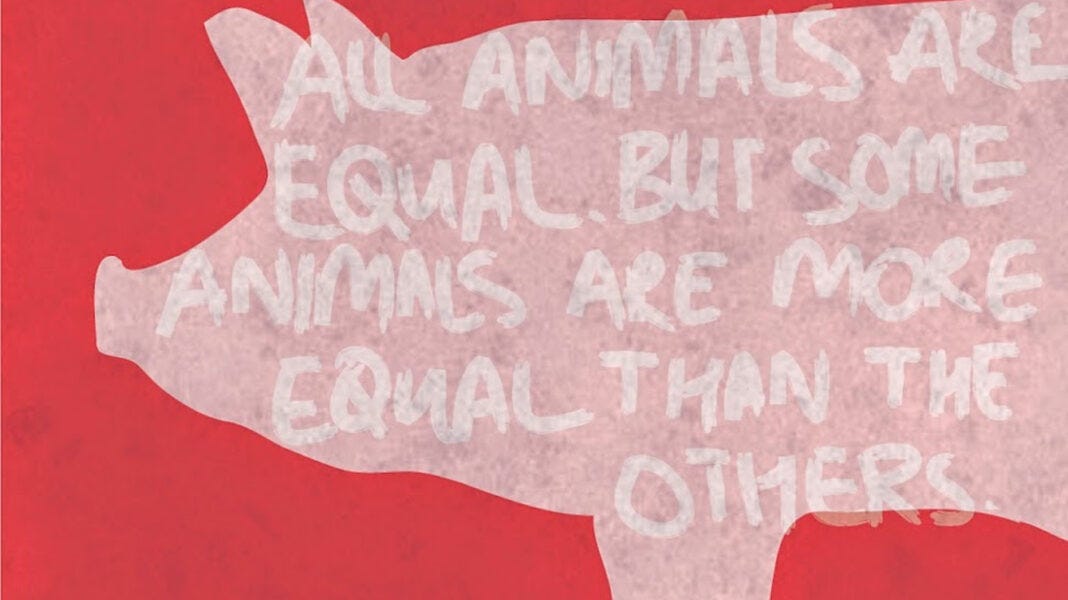 ALL ANIMALS ARE
EQUAL. BUT SOME
ANIMALS ARE MORE
EQUAL THAN THE
OTHERS.